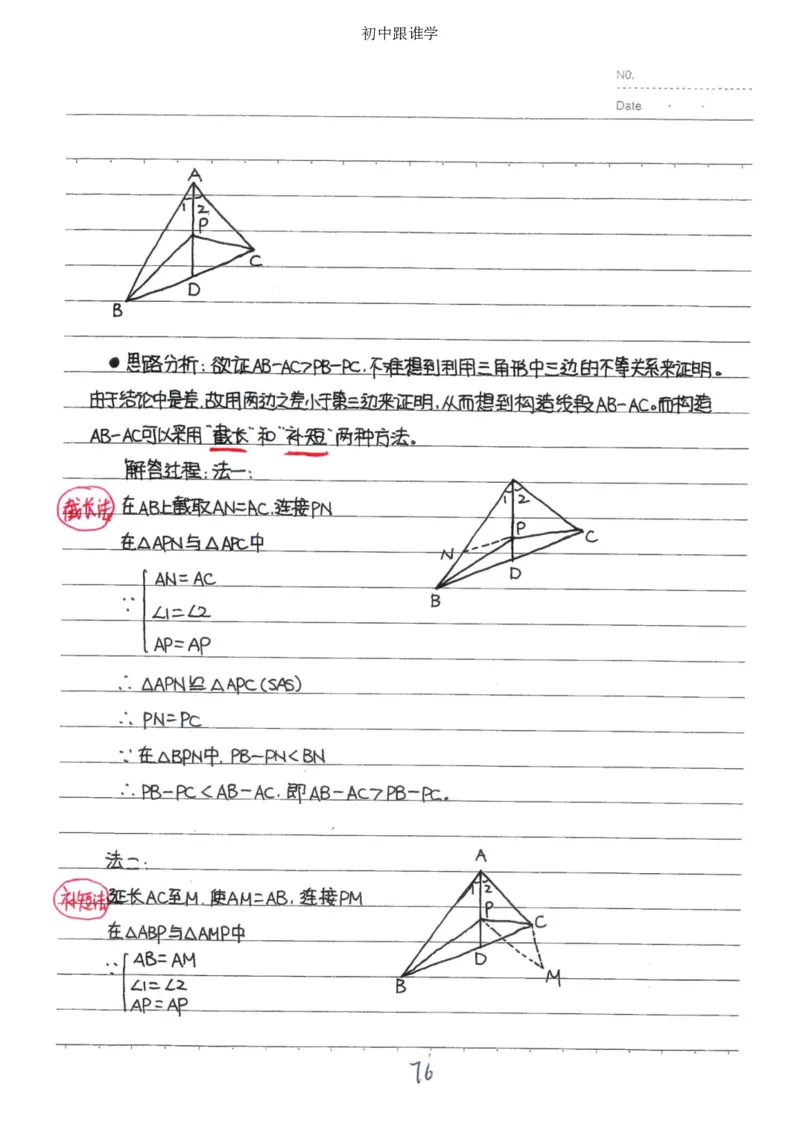 初中跟谁学
NO.
Date
A
1 2
P
C
D
B
●思路分析:欲证AB-AC>PB-PC,不难想到利用三角形中三边的不等关系来证明。
由于结论中是差,故用两边之差小于第三边来证明,从而想到构造线段AB-AC。而构造
AB-AC可以采用“截长”和“补短”两种方法。
解答过程:法一:
截长法 在AB上截取AN=AC,连接PN
在△APN与△APC中
AN=AC
∵ ∠1=∠2
AP=AP
1 2
P
C
N
D
B
∴ △APN≌△APC(SAS)
∴ PN=PC
∵在△BPN中,PB-PN<BN
∴PB-PC<AB-AC,即AB-AC>PB-PC。
法二:
补短法 延长AC至M,使AM=AB,连接PM
在△ABP与△AMP中
∵ AB=AM
∠1=∠2
AP=AP
A
1 2
P
C
D
M
B
76